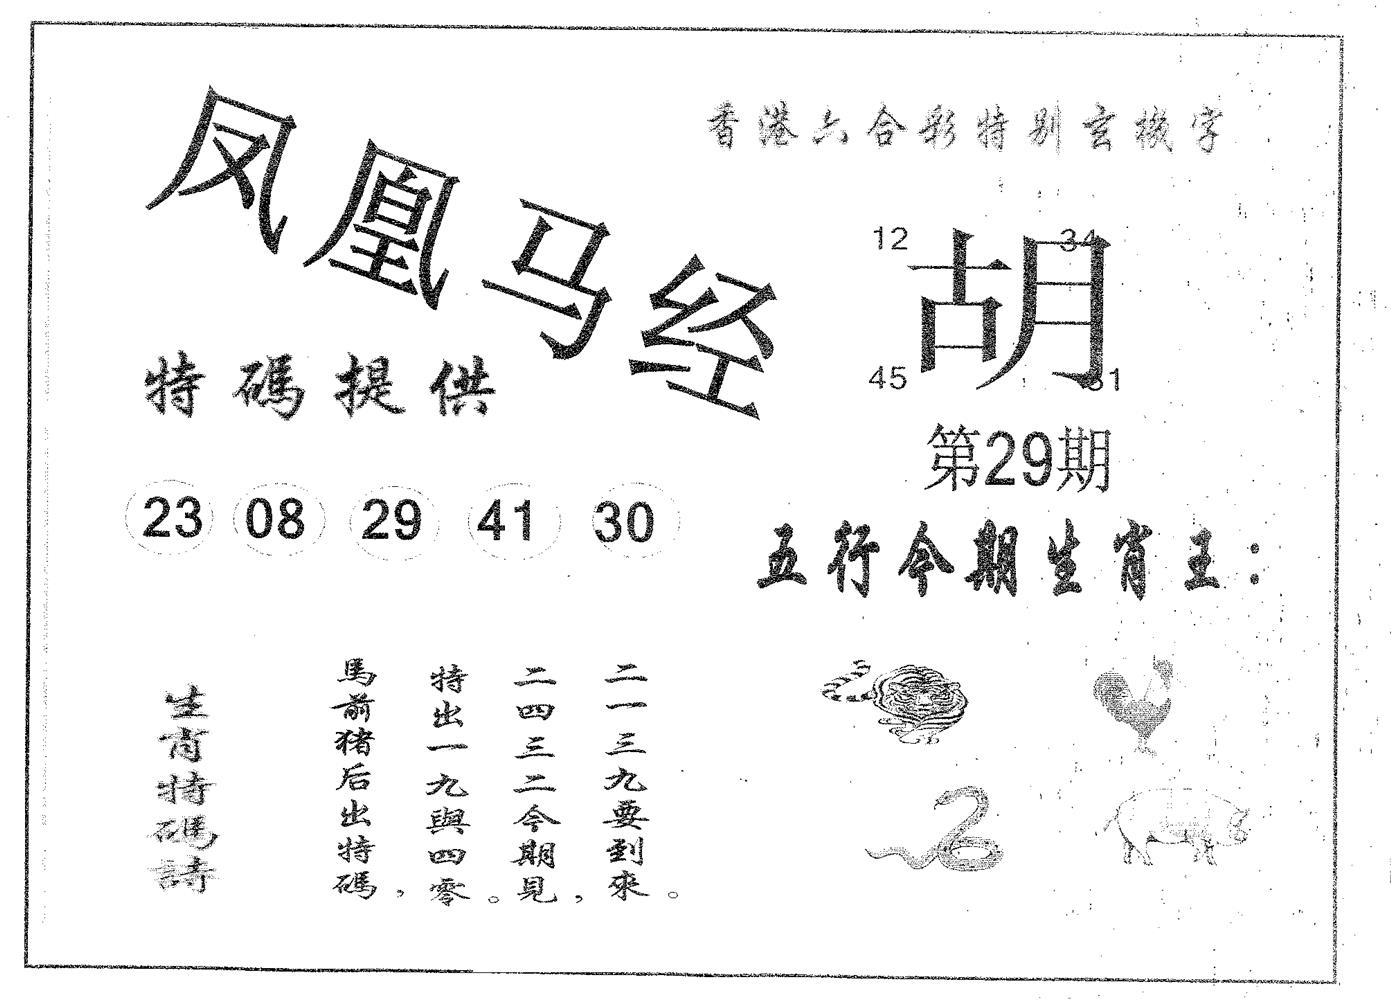 凤凰马经
香港六合彩特别玄機字
12 34
胡
45 31
特碼提供
第29期
23 08 29 41 30
五行今期生肖王：
生肖特碼詩
馬前猪后出特碼，
特出一九與四零。
二四三二今期見，
二一三九要到來。